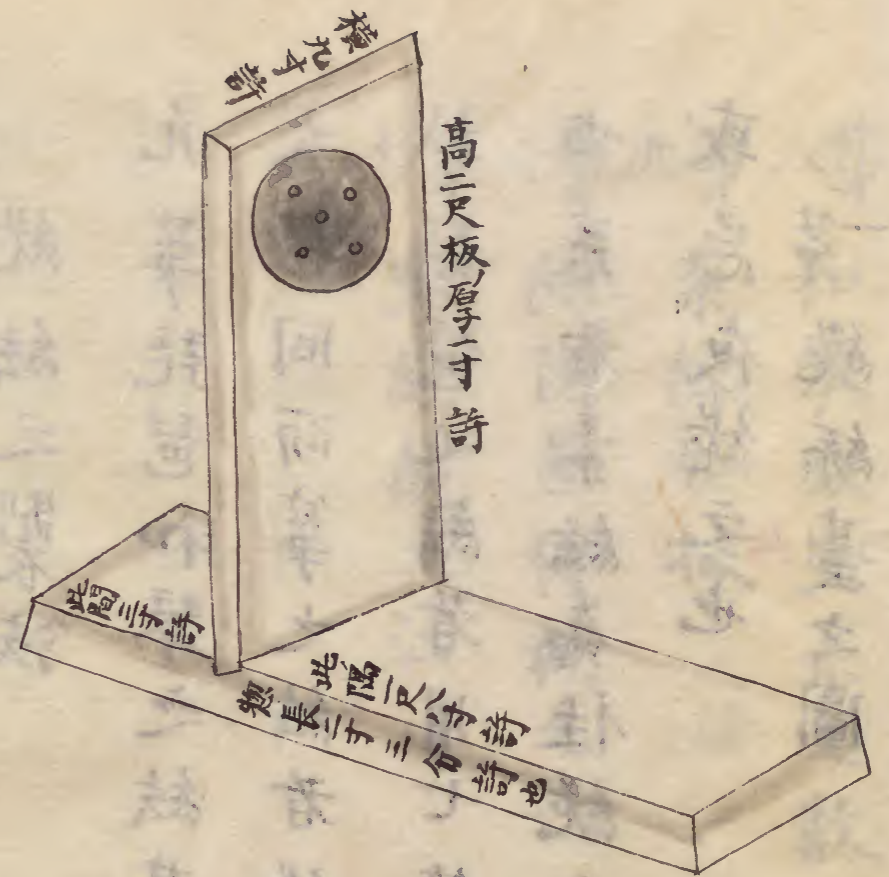 横九寸許
高二尺板ノ厚一寸許
此間三寸許
此隔一尺八寸許
惣長二寸三分許也